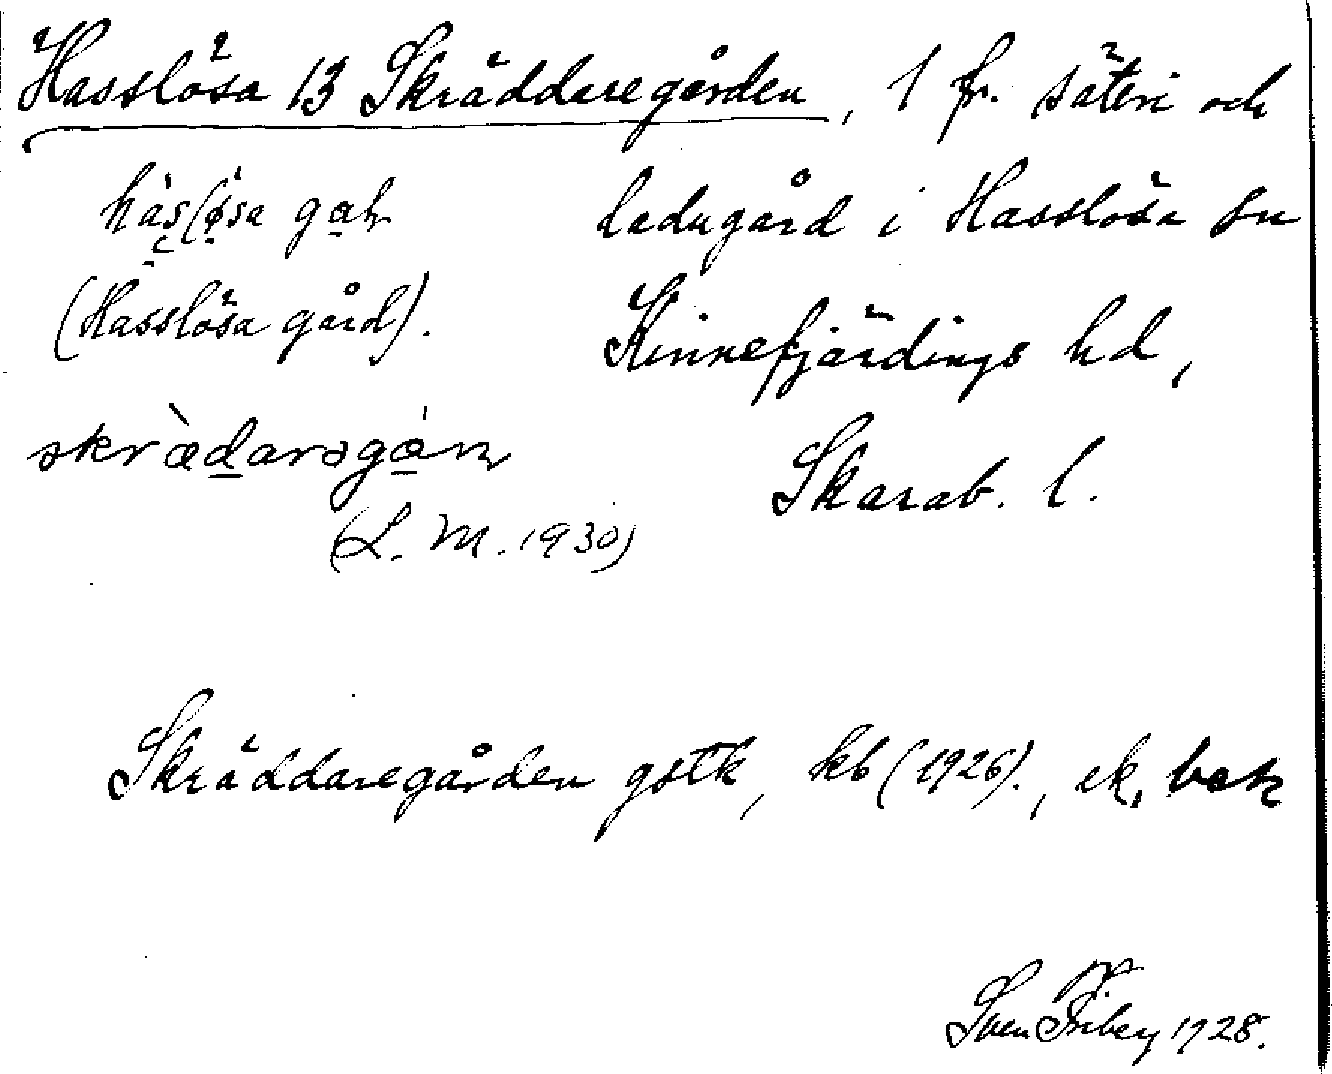 Hasslösa 13 Skräddaregården, 1 fr. säteri och
ladugård i Hasslösa sn
(Hasslösa gård).
Kinnefjärdings hd,
skrædarəgan
Skarab. l.
(L. M. 1930)
Skräddaregården gstk, kb (1926)., ek, bek
Sven Friberg 1928.